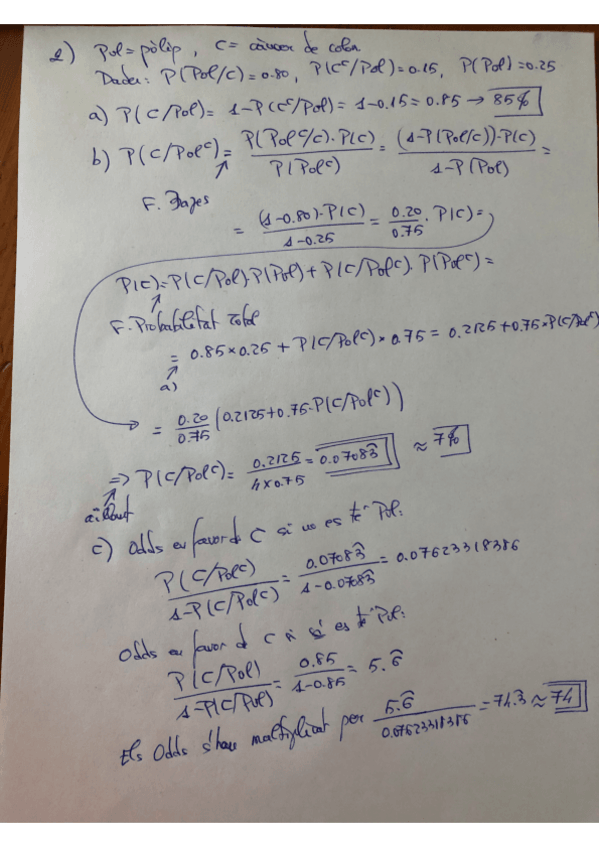 2) Pol = pòlip, C = càncer de colon
Dades: P(Pol/C) = 0.80, P(Cᶜ/Pol) = 0.15, P(Pol) = 0.25
a) P(C/Pol) = 1-P(Cᶜ/Pol) = 1-0.15 = 0.85 → 85%
b) P(C/Polᶜ) = P(Polᶜ/C)·P(C) / P(Polᶜ) = (1-P(Pol/C))·P(C) / 1-P(Pol) =
F. Bayes
= (1-0.80)·P(C) / 1-0.25 = 0.20/0.75 · P(C) =
P(C) = P(C/Pol)·P(Pol) + P(C/Polᶜ)·P(Polᶜ) =
F. Probabilitat Total
= 0.85×0.25 + P(C/Polᶜ)×0.75 = 0.2125+0.75×P(C/Polᶜ)
a)
= 0.20/0.75 (0.2125+0.75·P(C/Polᶜ))
=> P(C/Polᶜ) = 0.2125 / 4×0.75 = 0.07083̂ ≈ 7%
aïllant
c) Odds en favor d C si no es té Pol:
P(C/Polᶜ) / 1-P(C/Polᶜ) = 0.07083̂ / 1-0.07083̂ = 0.07623318386
Odds en favor d C si sí es té Pol:
P(C/Pol) / 1-P(C/Pol) = 0.85 / 1-0.85 = 5.6̂
Els Odds s'han multiplicat per 5.6̂ / 0.07623318386 = 74.3 ≈ 74